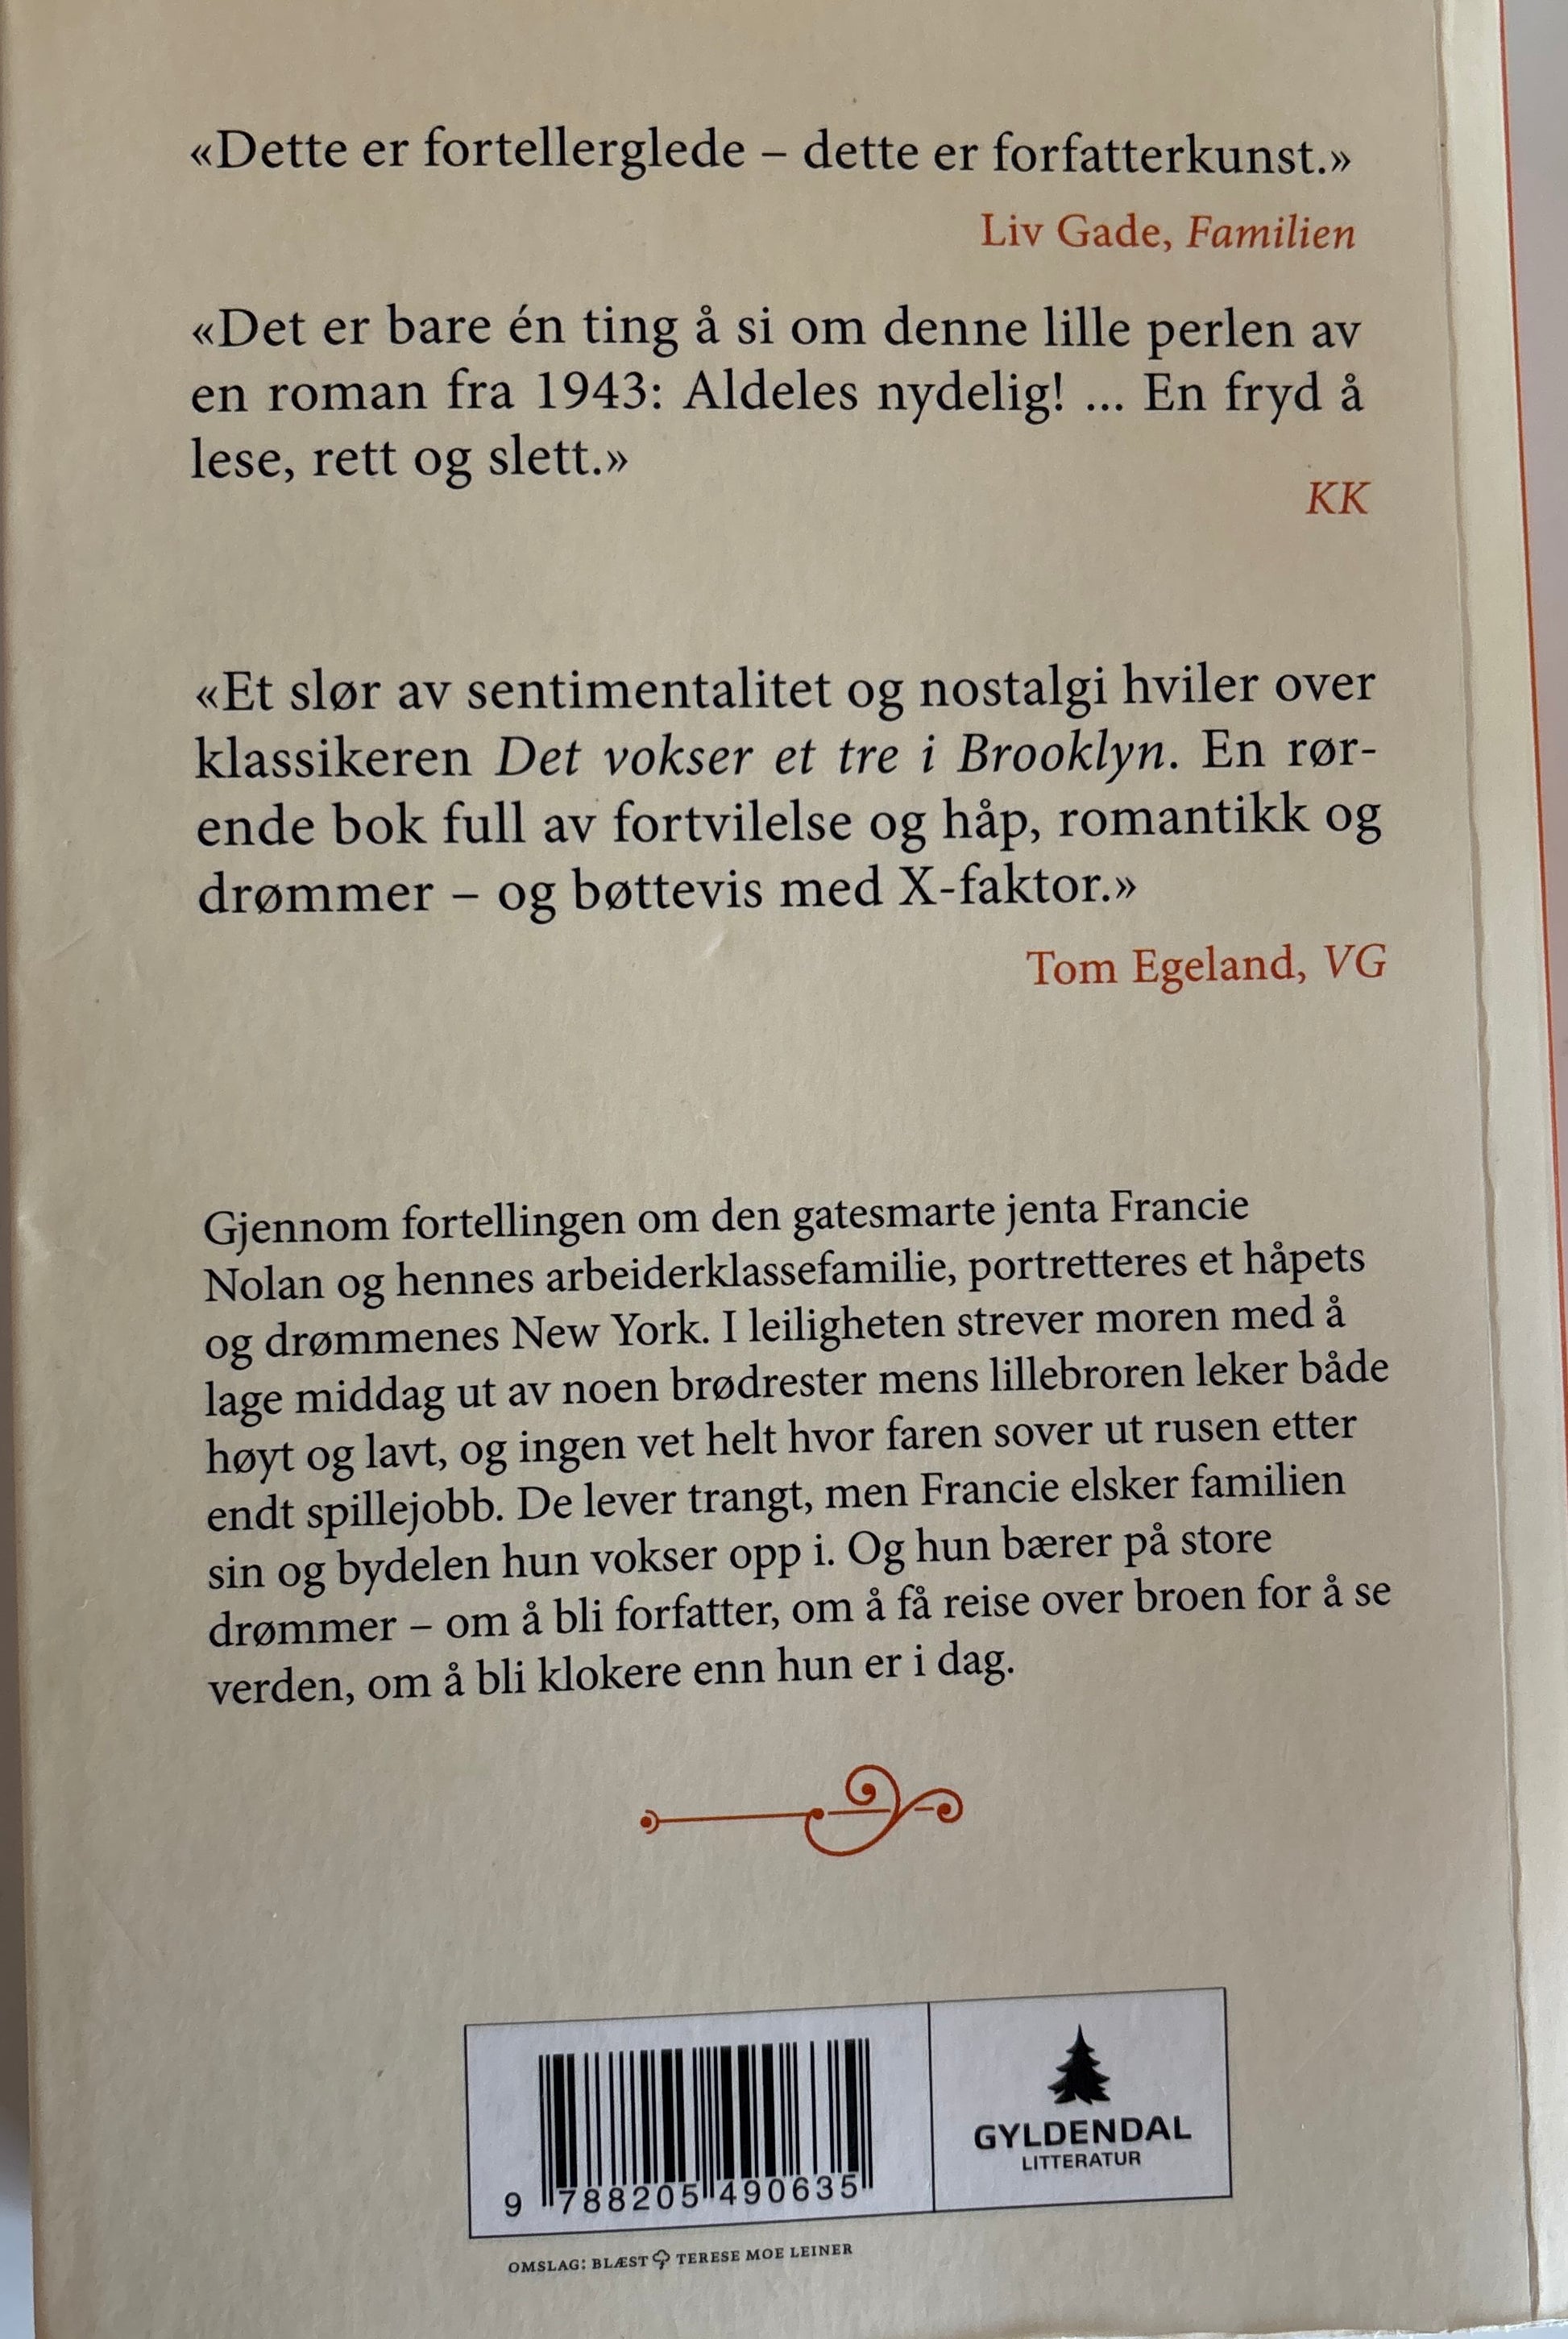 «Dette er fortellerglede – dette er forfatterkunst.»
Liv Gade, Familien
«Det er bare én ting å si om denne lille perlen av
en roman fra 1943: Aldeles nydelig! ... En fryd å
lese, rett og slett.»
KK
«Et slør av sentimentalitet og nostalgi hviler over
klassikeren Det vokser et tre i Brooklyn. En rør-
ende bok full av fortvilelse og håp, romantikk og
drømmer – og bøttevis med X-faktor.»
Tom Egeland, VG
Gjennom fortellingen om den gatesmarte jenta Francie
Nolan og hennes arbeiderklassefamilie, portretteres et håpets
og drømmenes New York. I leiligheten strever moren med å
lage middag ut av noen brødrester mens lillebroren leker både
høyt og lavt, og ingen vet helt hvor faren sover ut rusen etter
endt spillejobb. De lever trangt, men Francie elsker familien
sin og bydelen hun vokser opp i. Og hun bærer på store
drømmer – om å bli forfatter, om å få reise over broen for å se
verden, om å bli klokere enn hun er i dag.
9 788205 490635
GYLDENDAL
LITTERATUR
OMSLAG: BLÆST TERESE MOE LEINER